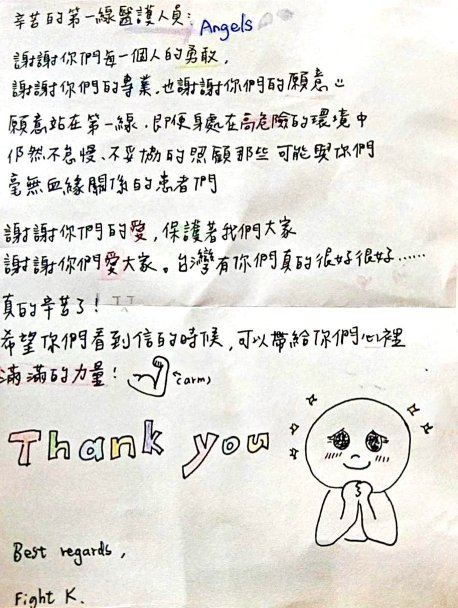 辛苦的第一線醫護人員: Angels
謝謝你們每一個人的勇敢,
謝謝你們的專業,也謝謝你們的願意
願意站在第一線,即便身處在高危險的環境中
仍然不怠慢、不妥協的照顧那些可能與你們
毫無血緣關係的患者們
謝謝你們的愛,保護著我們大家
謝謝你們愛大家。台灣有你們真的很好很好……
真的辛苦了! TT
希望你們看到信的時候,可以帶給你們心裡
滿滿的力量! (arm)
Thank you
Best regards,
Fight K.